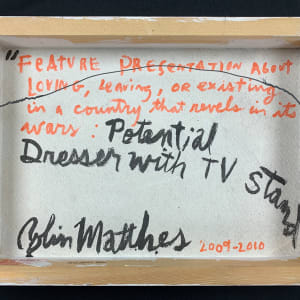 "Feature Presentation About
Loving, leaving, or existing
in a country that revels in its
wars: Potential
Dresser with TV Stand
Colin Matthes 2009-2010